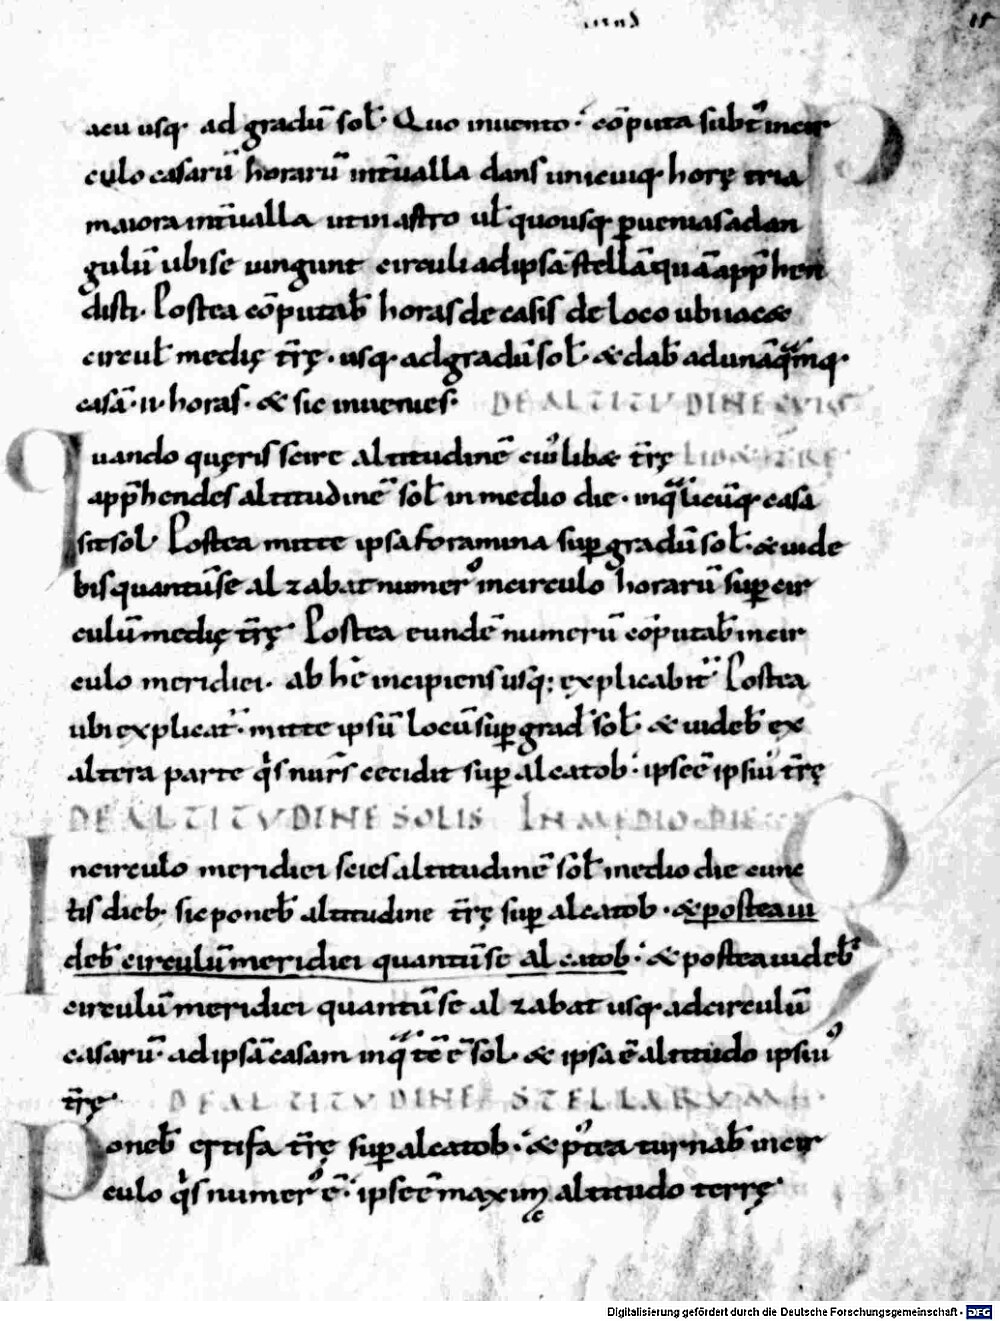 15
acu usq; ad gradū sol̄. Quo inuento. cōputa subt̾ in cir
culo casarū horarū int̄ualla dans unicuiq; horę tria
maiora int̄ualla ut in astro ul̄ quousq; ꝑuenias ad an
gulū ubi se iungunt circuli ad ipsā stellā quā app̄hen
disti. Postea cōputab̄ horas de casis de loco ubi iacet
circul̄ medię tr̄ę. usq; ad gradū sol̄. & dab̄ ad unāquāq;
casā .ii. horas. & sic inuenies. DE ALTITUDINE CUIUS
quando queris scire altitudinē cui' libet tr̄ę LIBET TRE
app̄hendes altitudinē sol̄ in medio die. in qualicūq; casa
sit sol. Postea mitte ipsa foramina suꝑ gradū sol̄. & uide
bis quantū se alzabat numer' in circulo horarū suꝑ cir
culū medię tr̄ę. Postea eundē numerū cōputab̄ in cir
culo meridiei. ab h̄ incipiens usq; explicabit̾ Postea
ubi explicat̾. mitte ipsū locū suꝑ grad̄ sol̄. & uideb̄ ex
altera parte q̇s nur̄s cecidit suꝑ alcatob. ipse ē ipsiu' tr̄ę
DE ALTITUDINE SOLIS IN MEDIO DIE
In circulo meridiei scies altitudinē sol̄ medio die cunc
tis dieb. sic poneb̄ altitudine tr̄ę suꝑ alcatob. & postea ui
deb̄ circulū meridiei quantū se alcatob. & postea uideb̄
circulū meridiei quantū se alzabat usq; ad circulū
casarū. ad ipsā casam in qua tē ē sol. & ipsa ē altitudo ipsiu'
tr̄ę. DE ALTITUDINE STELLARUM
Poneb̄ ertifa tr̄ę suꝑ alcatob. & p'tea turnab̄ in cir
culo q̇s numer' ē. ipse ē maxim; altitudo terrę.
Digitalisierung gefördert durch die Deutsche Forschungsgemeinschaft - DFG